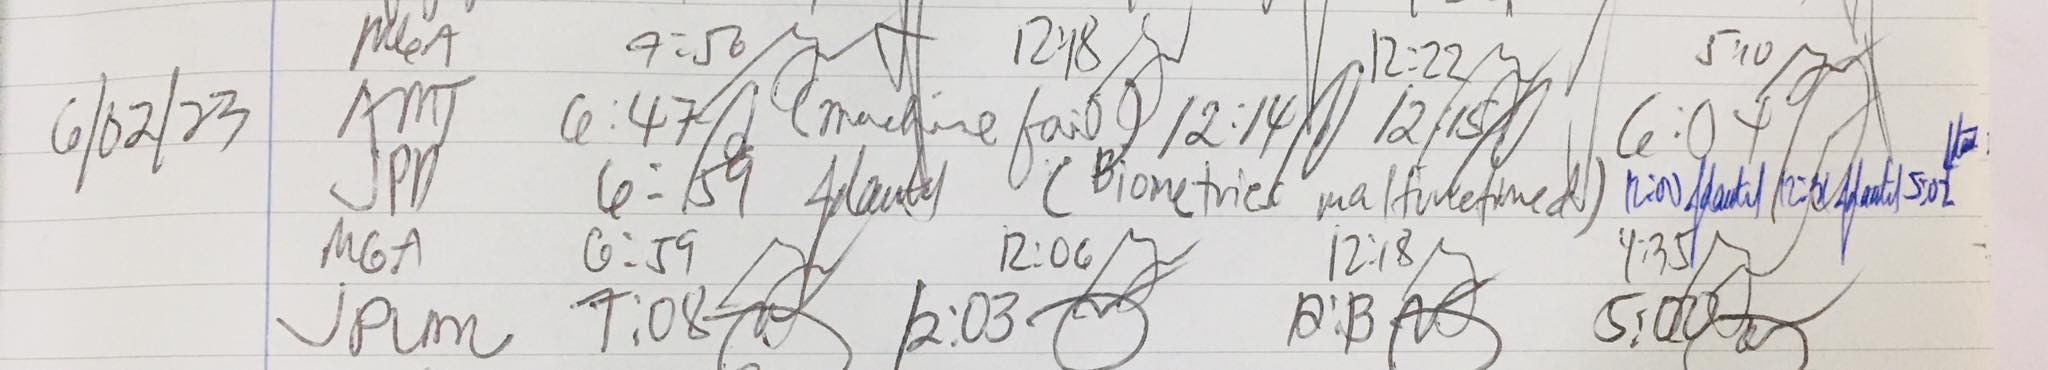 MGA 7:50 12:18 12:22 5:10
6/02/23 AMT 6:47 (machine fail) 12:14 12:15 6:04
JPD 6:59 (Biometrics malfunctioned) 12:00 5:02
MGA 6:59 12:06 12:18 4:35
JPLM 7:08 12:03 12:13 5:02